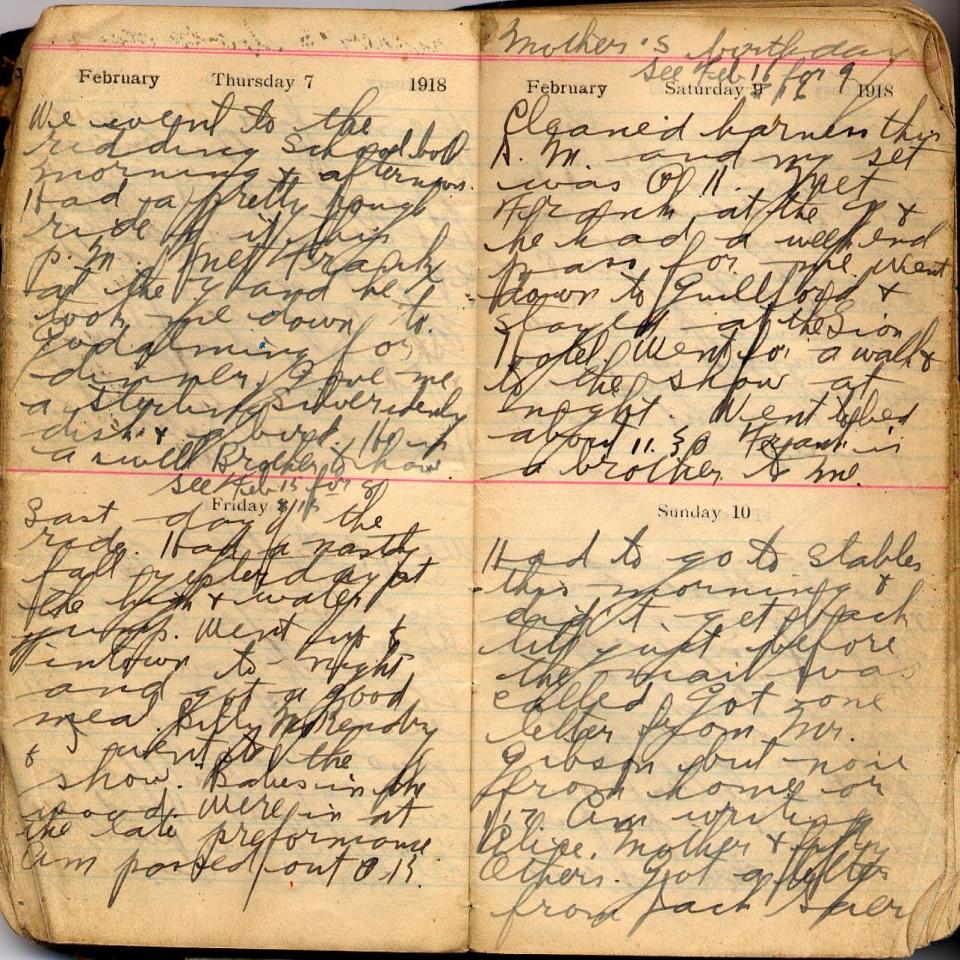 February Thursday 7 1918
We went to the
ridding School both
morning & afternoon.
Had a pretty rough
ride of it this
p.m. Met Frank
at the Y and he
took me down to
Godalming for
dinner. Gave me
a sterling silver identy
disk &
a swell Brother
see Feb 15 for 8
Friday 8/15
Last day of the
ride. Had a nasty
fall yesterday at
the &  water
jump. Went up to
tintown to-night
and got a good
meal. Billy
& I went to the
show. Babes in the
wood. Were in at
the late preformance
Am passed out
Mother's birthday
see Feb 16 for 9
February Saturday 9 16 1918
Cleaned harness this
A. M. and my set
was O. K. Met
Frank at the Y &
he had a week end
pass for me. Went
down to Guillford &
stayed at the Lion
Hotel. Went for a walk &
to the show at
night. Went to bed
about 11.30 Frank is
a brother to me.
Sunday 10
Had to go to stables
this morning &
didn't get back
till just before
the mail was
called. Got one
letter from Mr.
Gibson but none
from home or
Am writing
Alice, Mother &
Others. Got a letter
from Jack